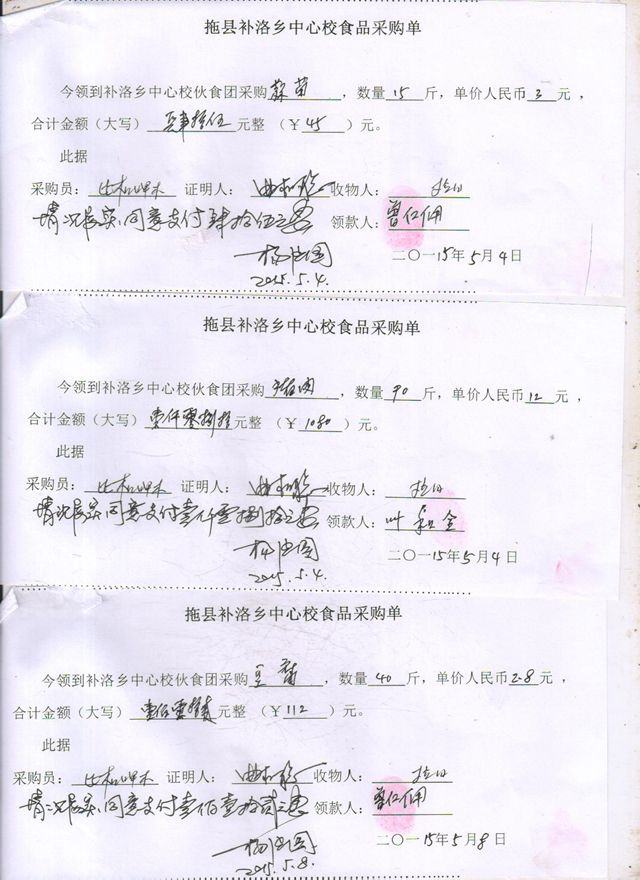 拖县补洛乡中心校食品采购单
今领到补洛乡中心校伙食团采购 蒜苗 ，数量 15 斤，单价人民币 3 元，
合计金额（大写） 肆拾伍 元整 （￥ 45 ）元。
此据
采购员： 证明人： 收物人：
情况属实，同意支付肆拾伍元 领款人： 曾仁佣
二〇一15年5月4日
2015.5.4.
拖县补洛乡中心校食品采购单
今领到补洛乡中心校伙食团采购 猪肉 ，数量 90 斤，单价人民币 12 元，
合计金额（大写） 壹仟零捌拾 元整 （￥ 1080 ）元。
此据
采购员： 证明人： 收物人：
情况属实同意支付壹仟零捌拾元 领款人： 叶和金
二〇一15年5月4日
2015.5.4.
拖县补洛乡中心校食品采购单
今领到补洛乡中心校伙食团采购 豆腐 ，数量 40 斤，单价人民币 2.8 元，
合计金额（大写） 元整 （￥ 112 ）元。
此据
采购员： 证明人： 收物人：
情况属实，同意支付壹佰壹拾贰元 领款人： 曾仁佣
二〇一15年5月8日
2015.5.8.